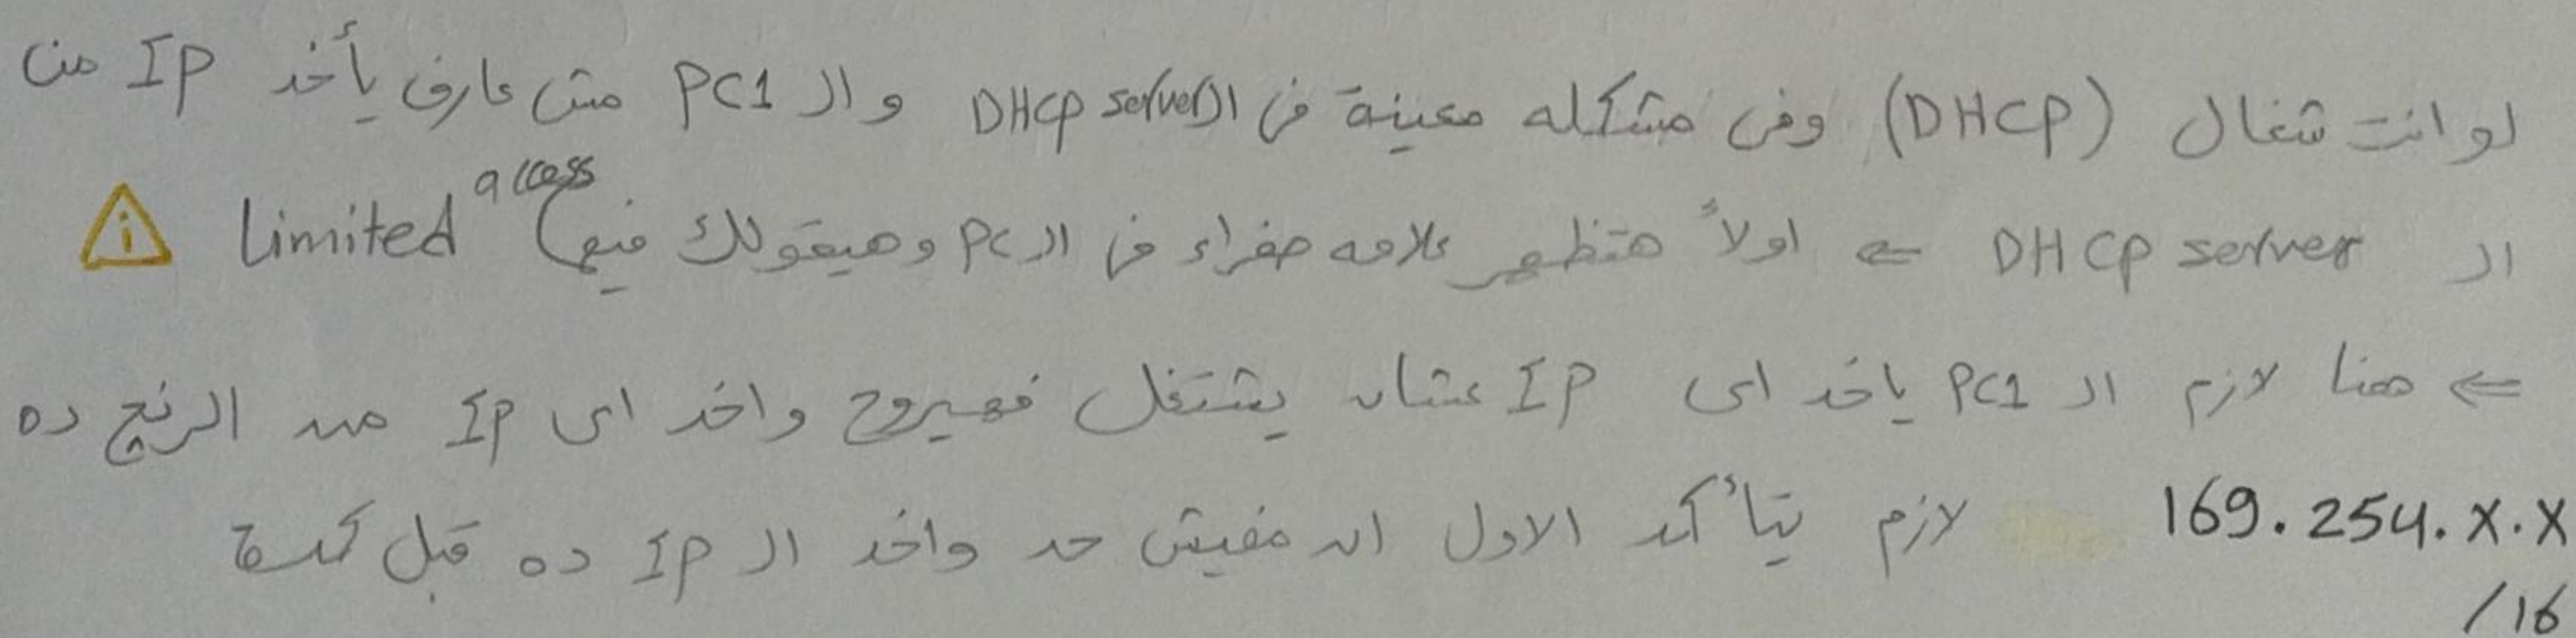 لو انت شغال (DHCP) وفى مشكله معينة فى الـ DHCP server والـ PC1 مش عارف يأخد IP من
الـ DHCP server ⇐ اولاً هتظهر علامه صفراء فى الـ PC وهيقولك فيها Limited access
⇐ هنا لازم الـ PC1 ياخد اى IP عشان يشتغل فهيروح واخد اى IP من الرنج ده
169.254.x.x /16 لازم يتأكد الاول ان مفيش حد واخد الـ IP ده قبل كدة